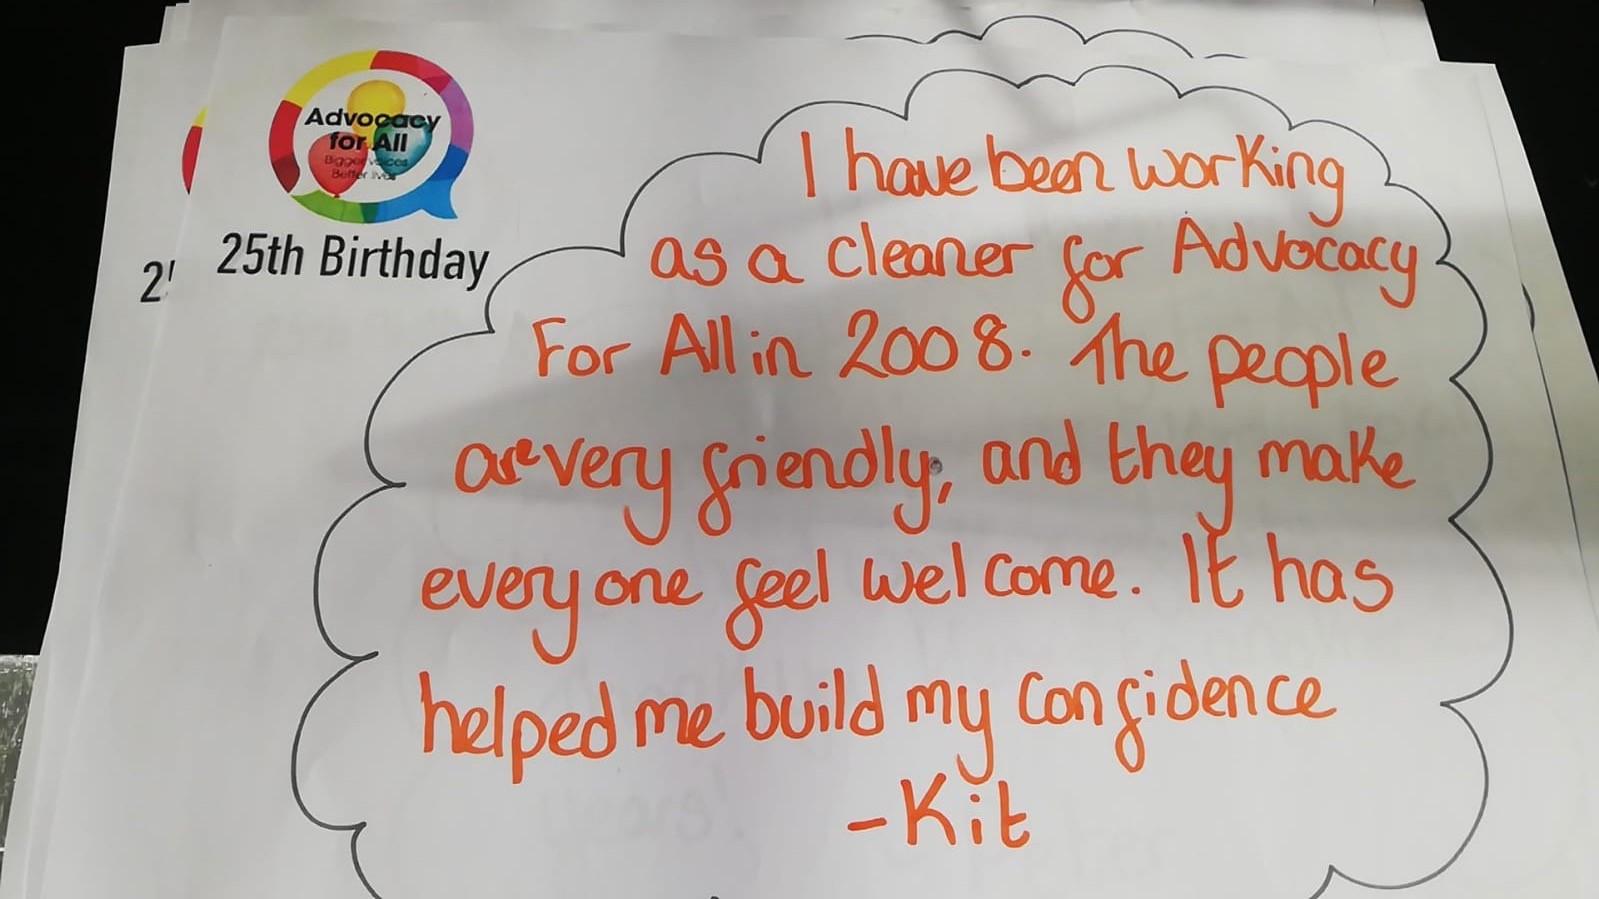 Advocacy
for All
Bigger voices
Better lives
25th Birthday
I have been working
as a cleaner for Advocacy
For All in 2008. The people
are very friendly, and they make
everyone feel welcome. It has
helped me build my confidence
-Kit
2